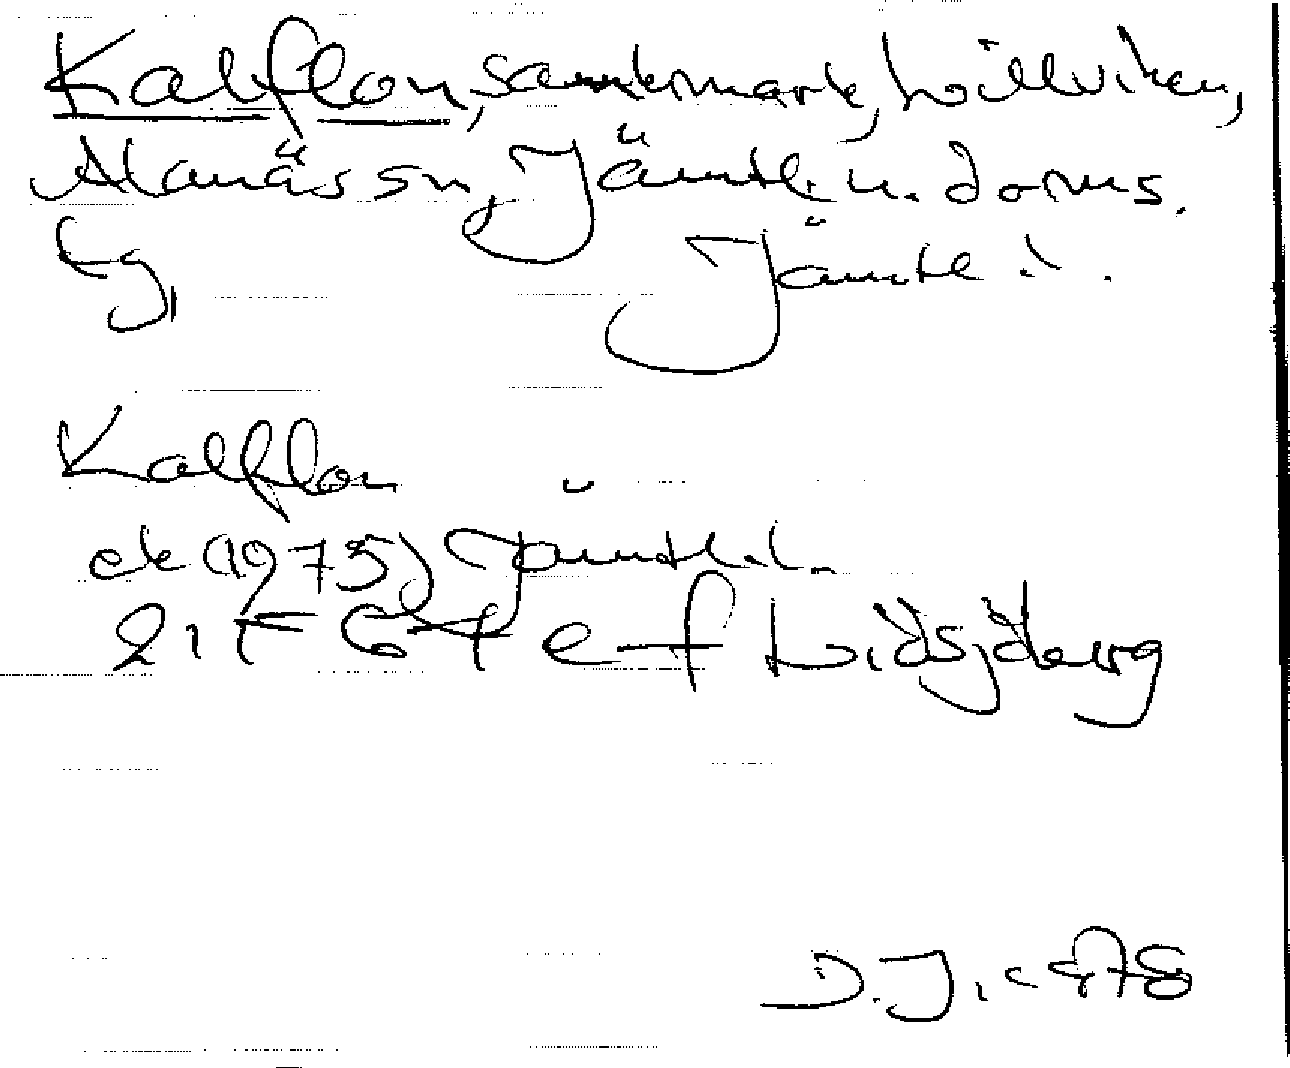 Kalflon, sankmark, Lillviken,
Alanäs sn, Jämtl. n. doms.
tg, Jämtl. l.
Kalflon
ek (1975) Jämtl. l.
21F 6f e f Lidsjöberg
D.J. c 1978